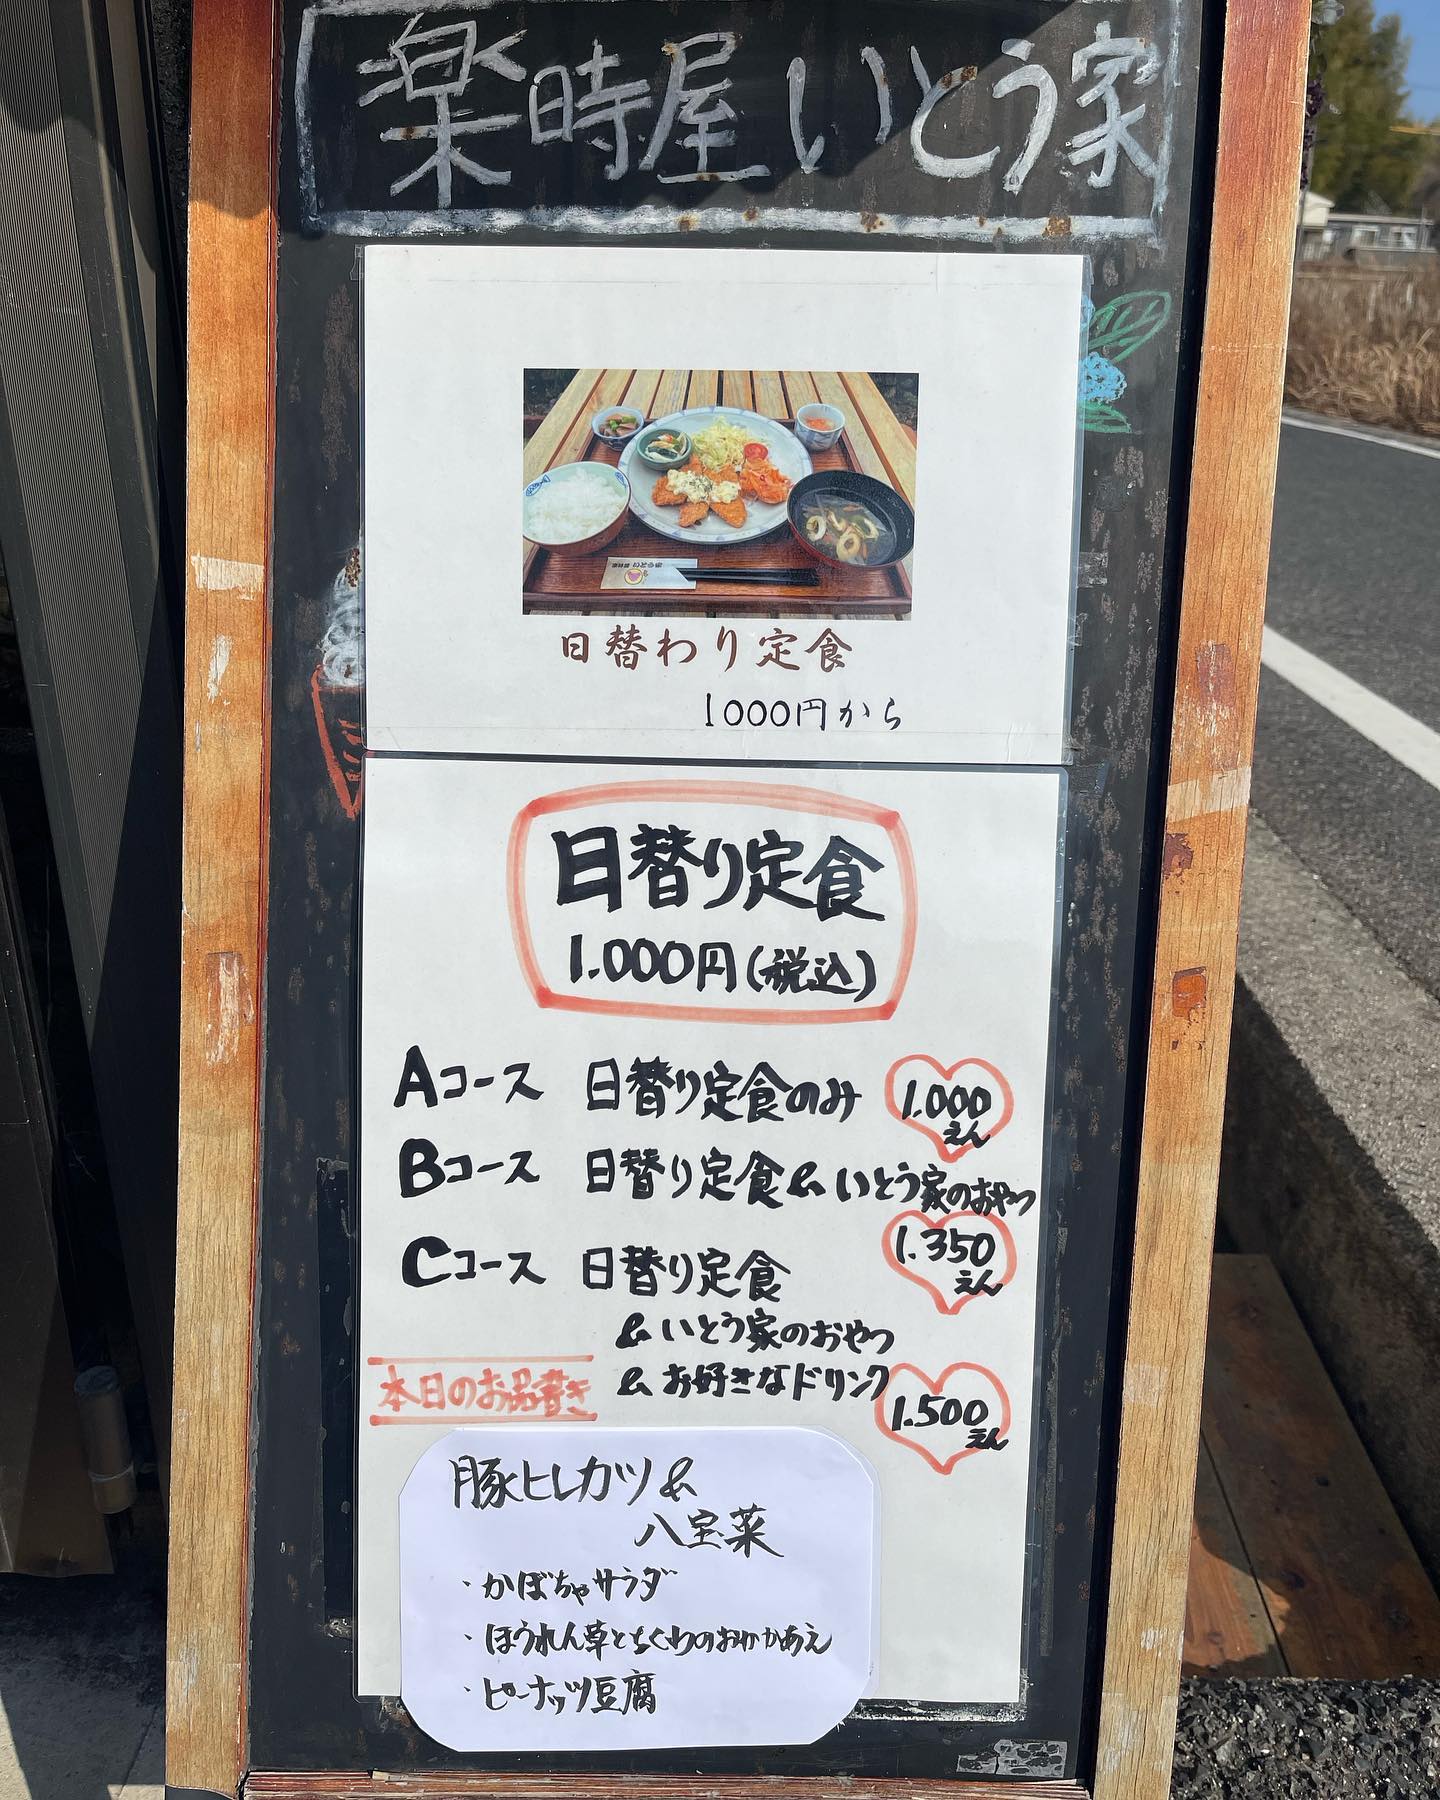 楽時屋いとう家
日替わり定食
1000円から
日替り定食
1.000円(税込)
Aコース 日替り定食のみ 1.000えん
Bコース 日替り定食&いとう家のおやつ
1.350えん
Cコース 日替り定食
&いとう家のおやつ
&お好きなドリンク
1.500えん
本日のお品書き
豚ヒレカツ&
八宝菜
・かぼちゃサラダ
・ほうれん草とちくわのおかかあえ
・ピーナッツ豆腐